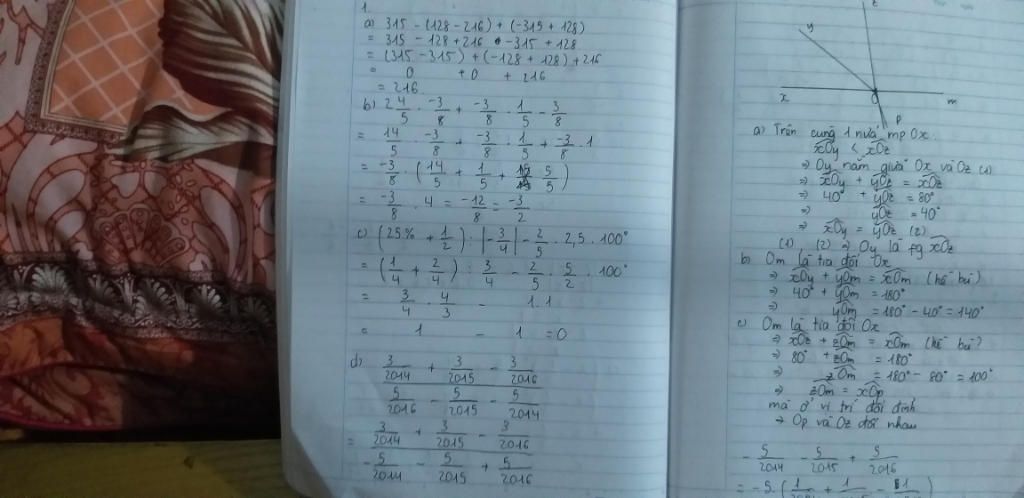 1.
a) 315 - (128 - 216) + (-315 + 128)
= 315 - 128 + 216 - 315 + 128
= (315 - 315) + (-128 + 128) + 216
= 0 + 0 + 216
= 216
b) 2 4/5 . -3/8 + -3/8 . 1/5 - 3/8
= 14/5 . -3/8 + -3/8 . 1/5 + -3/8 . 1
= -3/8 . (14/5 + 1/5 + 5/5)
= -3/8 . 4 = -12/8 = -3/2
c) (25% + 1/2) : |-3/4| - 2/5 . 2,5 . 100°
= (1/4 + 2/4) : 3/4 - 2/5 . 5/2 . 100°
= 3/4 . 4/3 - 1.1
= 1 - 1 = 0
d) 3/2014 + 3/2015 - 3/2016
5/2016 - 5/2015 - 5/2014
= 3/2014 + 3/2015 - 3/2016
- 5/2014 - 5/2015 + 5/2016
z
y
x O m
p
a) Trên cùng 1 nửa mp Ox.
xOy < xOz
⇒ Oy nằm giữa Ox và Oz (1)
⇒ xOy + yOz = xOz
⇒ 40° + yOz = 80°
⇒ yOz = 40°
⇒ xOy = yOz (2)
(1), (2) ⇒ Oy là fg xOz
b) Om là tia đối Ox
⇒ xOy + yOm = xOm (kề bù)
⇒ 40° + yOm = 180°
⇒ yOm = 180° - 40° = 140°
c) Om là tia đối Ox
⇒ xOz + zOm = xOm (kề bù)
⇒ 80° + zOm = 180°
⇒ zOm = 180° - 80° = 100°
⇒ zOm = xOp
mà ở vị trí đối đỉnh
→ Op và Oz đối nhau
- 5/2014 - 5/2015 + 5/2016
= -5.(